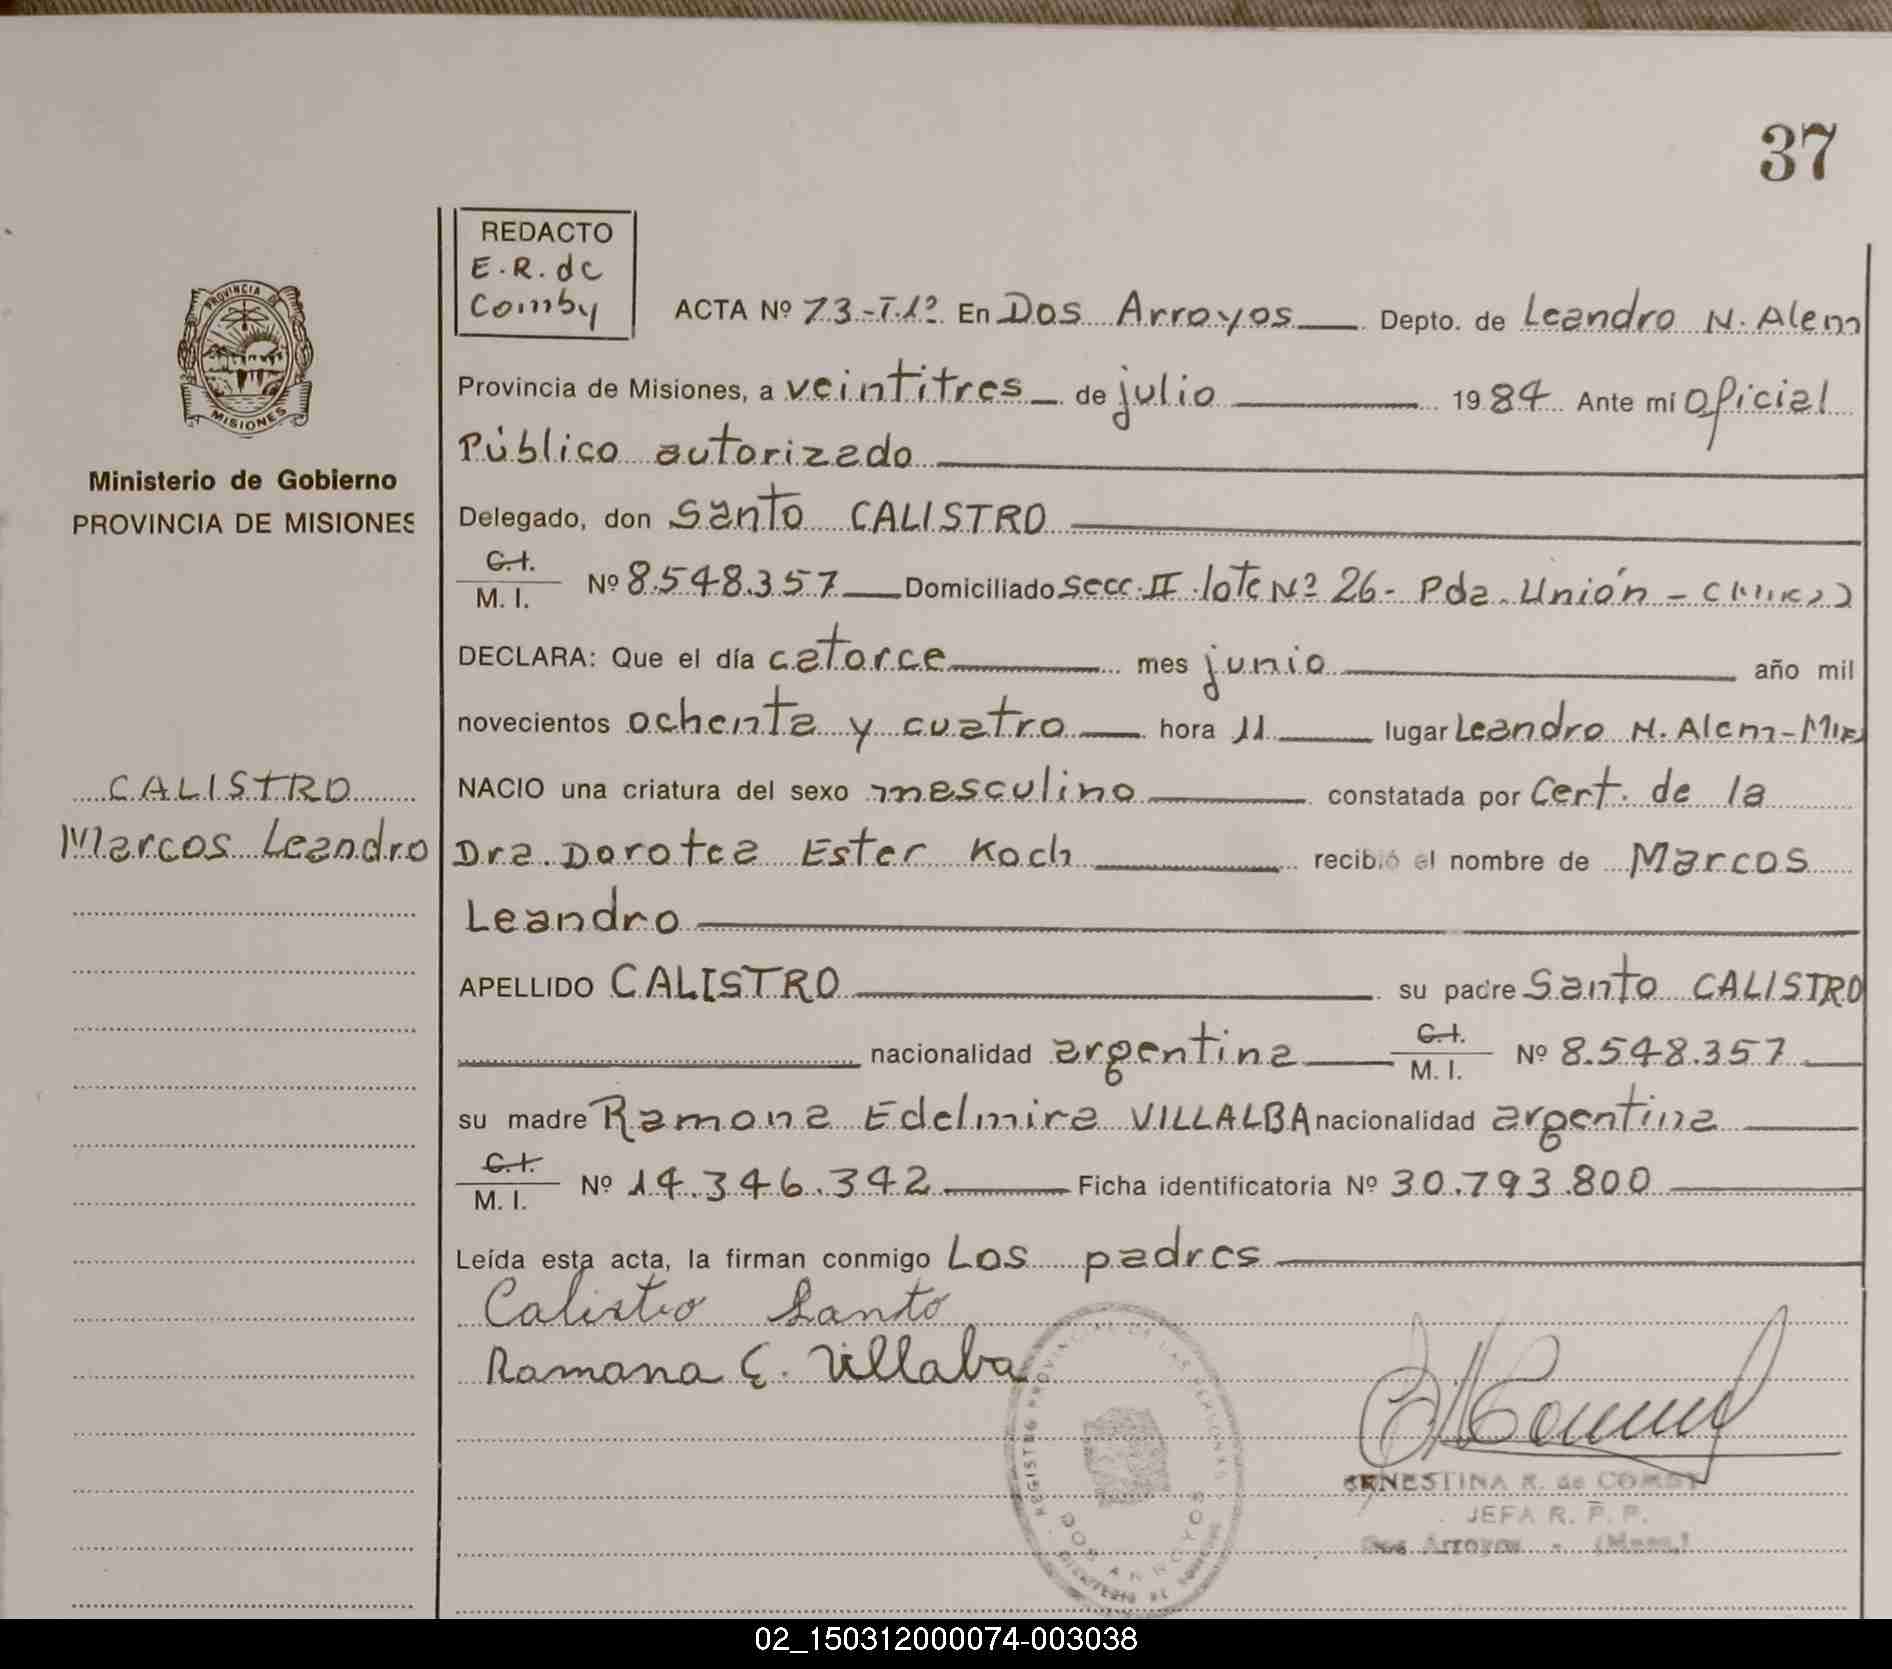 37
REDACTO
E.R. de
Comby
ACTA Nº 73-T.1º En Dos Arroyos Depto. de Leandro N. Alem
Provincia de Misiones, a veintitres de julio 1984 Ante mí Oficial
Público autorizado
Ministerio de Gobierno
PROVINCIA DE MISIONES
PROVINCIA DE
MISIONES
Delegado, don Santo CALISTRO
C.I.
M.I. Nº 8.548.357 Domiciliado secc. II lote Nº 26 - Pda. Unión -
DECLARA: Que el día catorce mes junio año mil
novecientos ochenta y cuatro hora 11 lugar Leandro N. Alem-Mnes
CALISTRO
Marcos Leandro
NACIO una criatura del sexo masculino constatada por Cert. de la
Dra. Dorotea Ester Koch recibió el nombre de Marcos
Leandro
APELLIDO CALISTRO su padre Santo CALISTRO
nacionalidad argentina C.I. M.I. Nº 8.548.357
su madre Ramona Edelmira VILLALBA nacionalidad argentina
C.I.
M.I. Nº 14.346.342 Ficha identificatoria Nº 30.793.800
Leída esta acta, la firman conmigo Los padres
Calistro Santo
Ramana E. Villaba
REGISTRO PROVINCIAL DE LAS PERSONAS
DOS ARROYOS
MINISTERIO DE GOBIERNO
ERNESTINA R. de COMBY
JEFA R. P. P.
Dos Arroyos - (Mnes.)
02_150312000074-003038